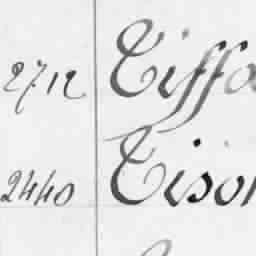 2712 Tiffa
2440 Tison